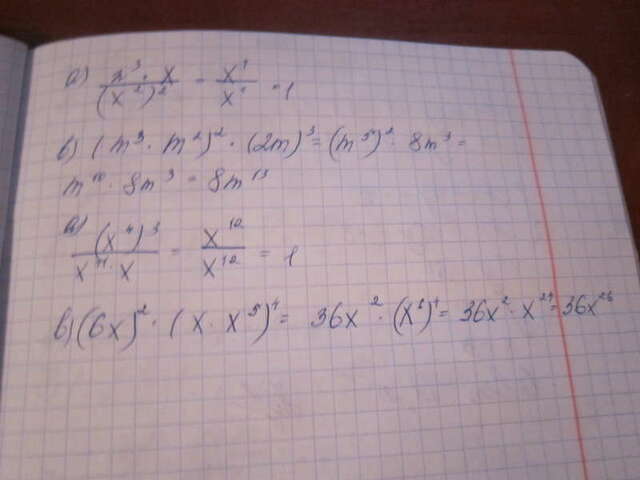 а) x³ · x / (x²)² = x⁴ / x⁴ = 1
в) (m³ · m²)² · (2m)³ = (m⁵)² · 8m³ =
m¹⁰ · 8m³ = 8m¹³
а) (x⁴)³ / x¹¹ · x = x¹² / x¹² = 1
в) (6x)² · (x · x⁵)⁴ = 36x² · (x⁶)⁴ = 36x² · x²⁴ = 36x²⁶